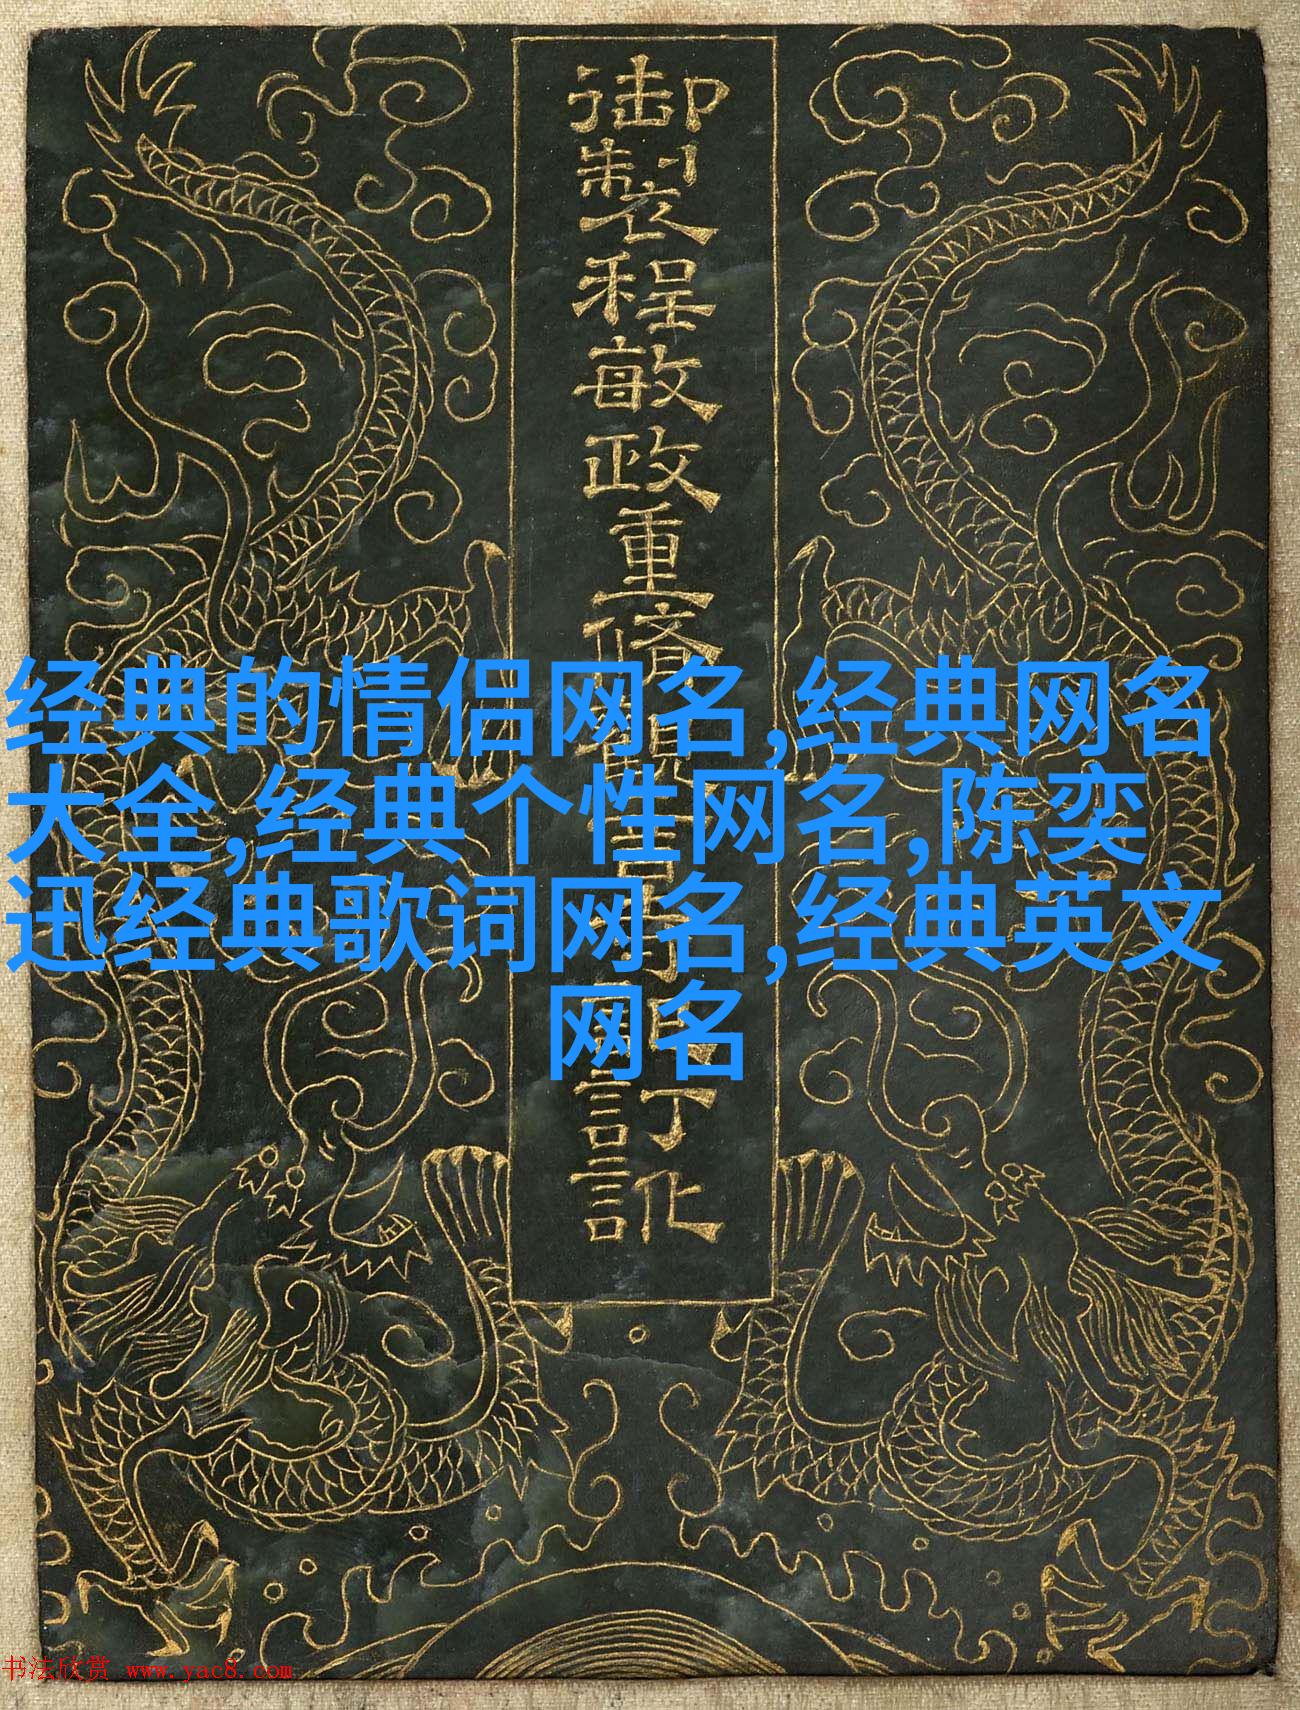 御製程敏政重脩訂訛
经典的情侣网名,经典网名
大全,经典个性网名,陈奕
迅经典歌词网名,经典英文
网名
书法欣赏 www.yac8.com